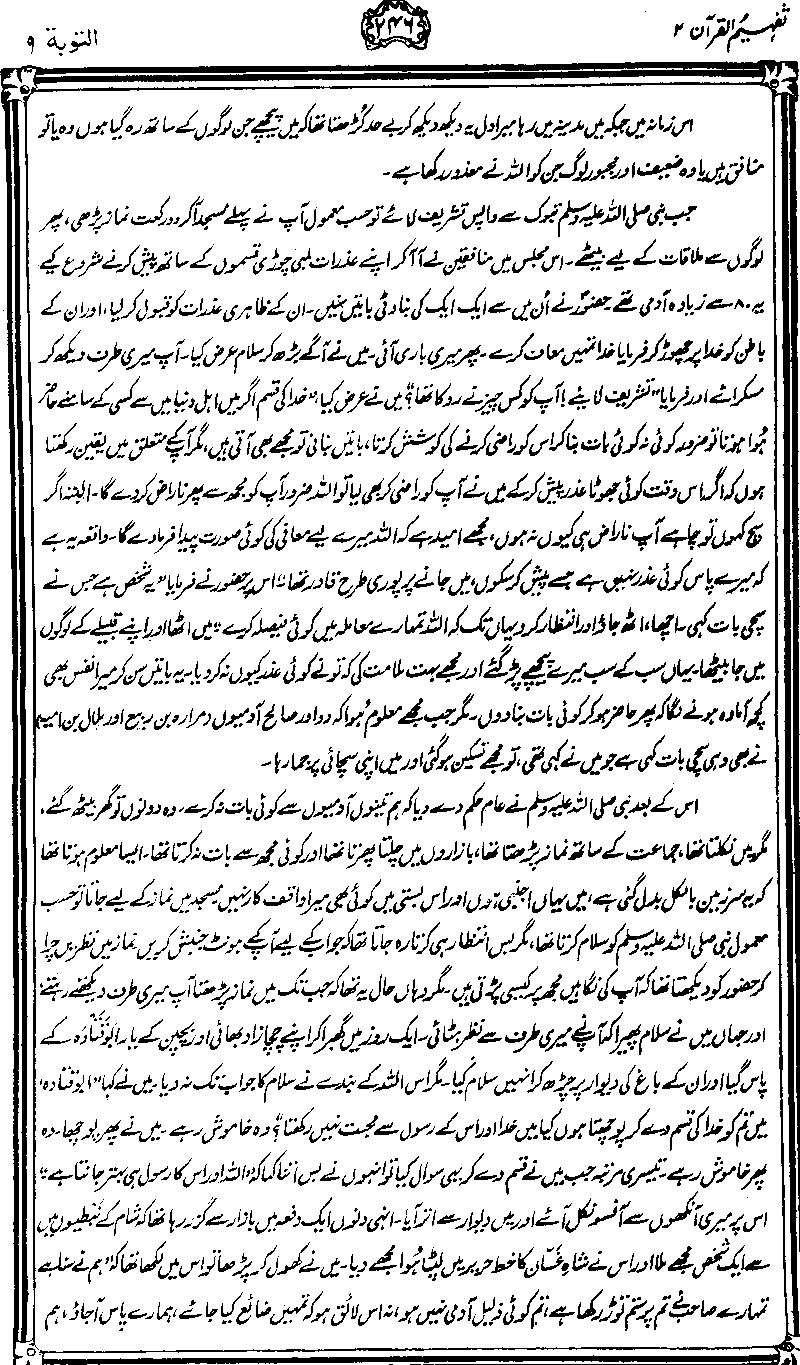 تفہیم القرآن ۲
۲۴۶
التوبۃ ۹
اس زمانہ میں جبکہ میں مدینہ میں رہا میرا دل یہ دیکھ دیکھ کر بے حد کڑھتا تھا کہ میں پیچھے جن لوگوں کے ساتھ رہ گیا ہوں وہ یا تو
منافق ہیں یا وہ ضعیف اور مجبور لوگ جن کو اللہ نے معذور رکھا ہے۔
جب نبی صلی اللہ علیہ وسلم تبوک سے واپس تشریف لائے تو حسب معمول آپ نے پہلے مسجد آکر دو رکعت نماز پڑھی، پھر
لوگوں سے ملاقات کے لیے بیٹھے۔ اس مجلس میں منافقین نے آ آ کر اپنے عذرات لمبی چوڑی قسموں کے ساتھ پیش کرنے شروع کیے
یہ ۸۰ سے زیادہ آدمی تھے۔ حضورؐ نے اُن میں سے ایک ایک کی بناوٹی باتیں سنیں۔ ان کے ظاہری عذرات کو قبول کر لیا، اور ان کے
باطن کو خدا پر چھوڑ کر فرمایا خدا تمہیں معاف کرے۔ پھر میری باری آئی۔ میں نے آگے بڑھ کر سلام عرض کیا۔ آپ میری طرف دیکھ کر
مسکرائے اور فرمایا "تشریف لائیے! آپ کو کس چیز نے روکا تھا؟" میں نے عرض کیا، "خدا کی قسم اگر میں اہل دنیا میں سے کسی کے سامنے حاضر
ہُوا ہوتا تو ضرور کوئی نہ کوئی بات بنا کر اس کو راضی کرنے کی کوشش کرتا، باتیں بنانی تو مجھے بھی آتی ہیں، مگر آپ کے متعلق میں یقین رکھتا
ہوں کہ اگر اس وقت کوئی جھوٹا عذر پیش کر کے میں نے آپ کو راضی کر بھی لیا تو اللہ ضرور آپ کو مجھ سے پھر ناراض کر دے گا۔ البتہ اگر
سچ کہوں تو چاہے آپ ناراض ہی کیوں نہ ہوں، مجھے امید ہے کہ اللہ میرے لیے معافی کی کوئی صورت پیدا فرما دے گا۔ واقعہ یہ ہے
کہ میرے پاس کوئی عذر نہیں ہے جسے پیش کر سکوں، میں جانے پر پوری طرح قادر تھا" اس پر حضور نے فرمایا "یہ شخص ہے جس نے
سچی بات کہی۔ اچھا، اٹھ جاؤ اور انتظار کرو یہاں تک کہ اللہ تمہارے معاملہ میں کوئی فیصلہ کرے"۔ میں اٹھا اور اپنے قبیلے کے لوگوں
میں جا بیٹھا۔ یہاں سب کے سب میرے پیچھے پڑ گئے اور مجھے بہت ملامت کی کہ تو نے کوئی عذر کیوں نہ کر دیا۔ یہ باتیں سن کر میرا نفس بھی
کچھ آمادہ ہونے لگا کہ پھر حاضر ہو کر کوئی بات بنا دوں۔ مگر جب مجھے معلوم ہُوا کہ دو اور صالح آدمیوں (مرارہ بن ربیع اور ہلال بن امیہ)
نے بھی وہی سچی بات کہی ہے جو میں نے کہی تھی، تو مجھے تسکین ہو گئی اور میں اپنی سچائی پر جما رہا۔
اس کے بعد نبی صلی اللہ علیہ وسلم نے عام حکم دے دیا کہ ہم تینوں آدمیوں سے کوئی بات نہ کرے۔ وہ دونوں تو گھر بیٹھ گئے،
مگر میں نکلتا تھا، جماعت کے ساتھ نماز پڑھتا تھا، بازاروں میں چلتا پھرتا تھا اور کوئی مجھ سے بات نہ کرتا تھا۔ ایسا معلوم ہوتا تھا
کہ یہ سرزمین بالکل بدل گئی ہے، میں یہاں اجنبی ہوں اور اس بستی میں کوئی بھی میرا واقف کار نہیں۔ مسجد میں نماز کے لیے جاتا تو حسب
معمول نبی صلی اللہ علیہ وسلم کو سلام کرتا تھا، مگر بس انتظار ہی کرتا رہ جاتا تھا کہ جواب کے لیے آپ کے ہونٹ جنبش کریں۔ نماز میں نظریں چرا
کر حضور کو دیکھتا تھا کہ آپ کی نگاہیں مجھ پر کیسی پڑتی ہیں۔ مگر وہاں حال یہ تھا کہ جب تک میں نماز پڑھتا آپ میری طرف دیکھتے رہتے
اور جہاں میں نے سلام پھیرا کہ آپ نے میری طرف سے نظر ہٹائی۔ ایک روز میں گھبرا کر اپنے چچازاد بھائی اور بچپن کے یار ابو قتادہ کے
پاس گیا اور ان کے باغ کی دیوار پر چڑھ کر انہیں سلام کیا۔ مگر اس اللہ کے بندے نے سلام کا جواب تک نہ دیا۔ میں نے کہا "ابو قتادہ!
میں تم کو خدا کی قسم دے کر پوچھتا ہوں کیا میں خدا اور اس کے رسول سے محبت نہیں رکھتا؟" وہ خاموش رہے۔ میں نے پھر پوچھا۔ وہ
پھر خاموش رہے۔ تیسری مرتبہ جب میں نے قسم دے کر یہی سوال کیا تو انہوں نے بس اتنا کہا کہ "اللہ اور اس کا رسول ہی بہتر جانتا ہے"۔
اس پر میری آنکھوں سے آنسو نکل آئے اور میں دیوار سے اتر آیا۔ انہی دنوں ایک دفعہ میں بازار سے گزر رہا تھا کہ شام کے نبطیوں میں
سے ایک شخص مجھے ملا اور اس نے شاہِ غسّان کا خط حریر میں لپٹا ہُوا مجھے دیا۔ میں نے کھول کر پڑھا تو اس میں لکھا تھا کہ "ہم نے سنا ہے
تمہارے صاحب نے تم پر ستم توڑ رکھا ہے، تم کوئی ذلیل آدمی نہیں ہو، نہ اس لائق ہو کہ تمہیں ضائع کیا جائے، ہمارے پاس آ جاؤ، ہم